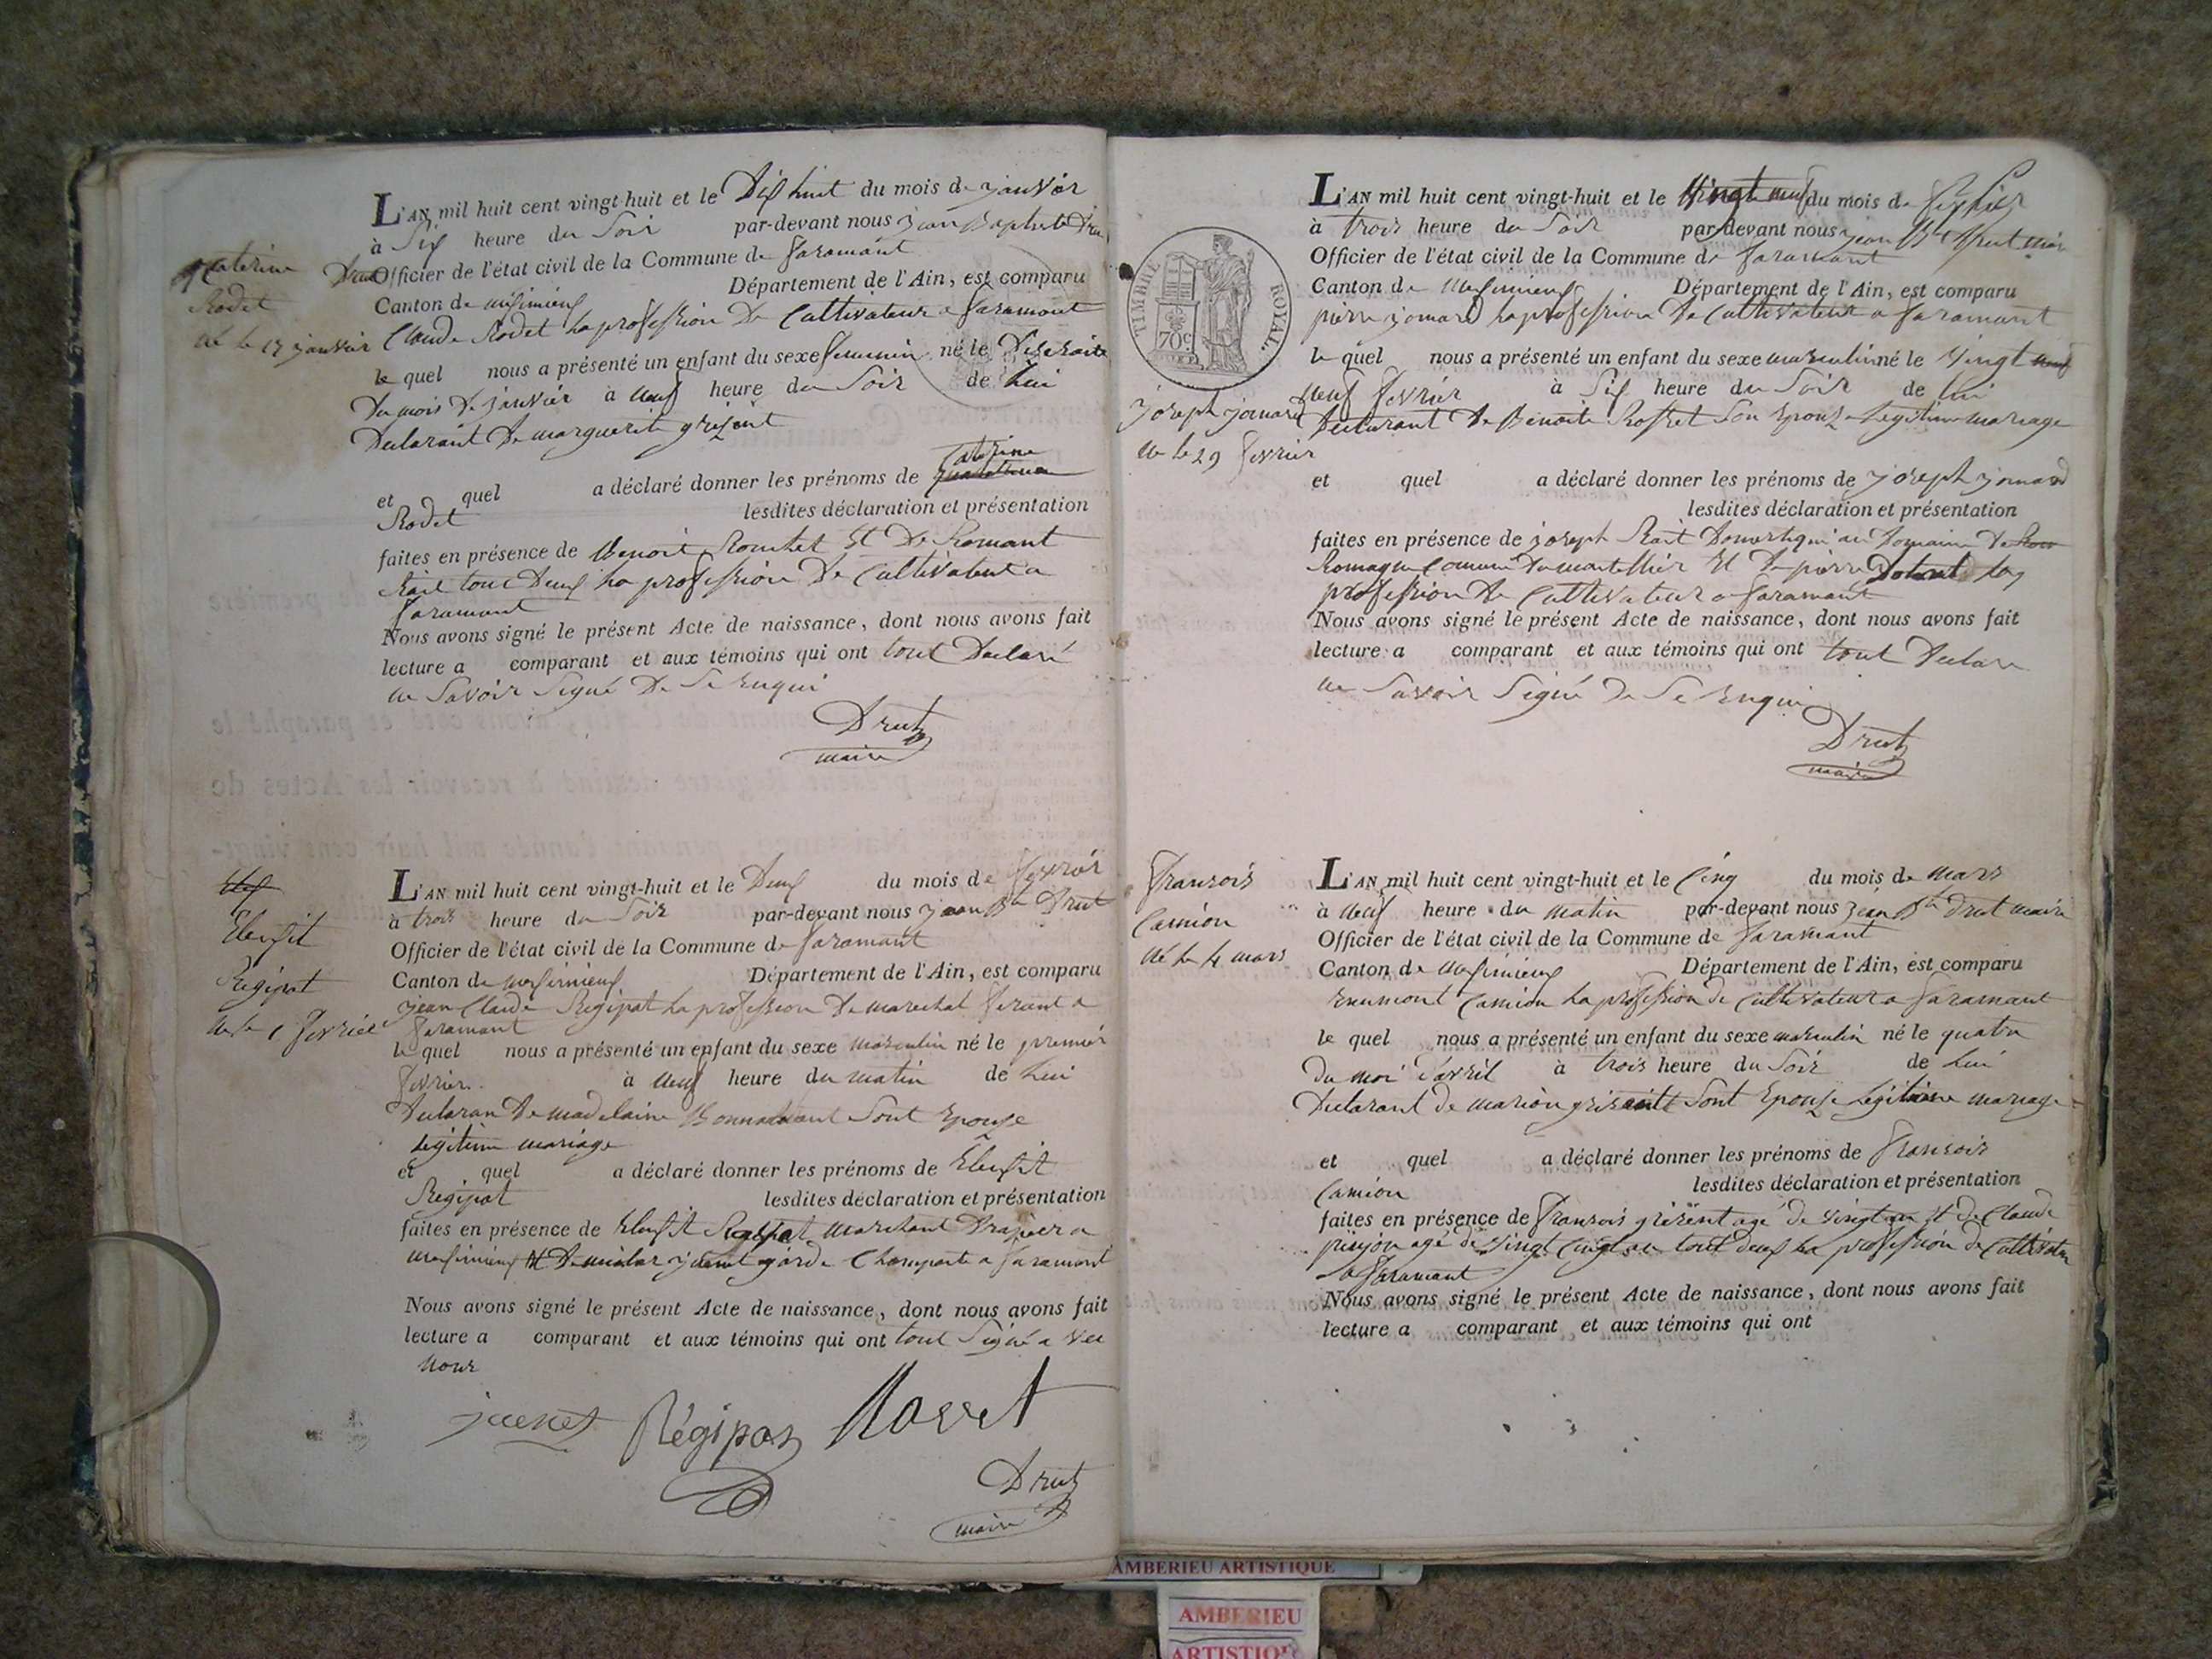 L'AN mil huit cent vingt-huit et le Dix huit du mois de janvier
à Six heure du Soir par-devant nous jean Baptiste Drut
Officier de l'état civil de la Commune de faramant
Canton de Département de l'Ain, est comparu
Claude Rodet la profession De Cultivateur a faramant
le quel nous a présenté un enfant du sexe feminin né le
Du mois De janvier à neuf heure du Soir de Lui
Declarant De marguerite grizint
et quel a déclaré donner les prénoms de Caterine
Rodet lesdites déclaration et présentation
faites en présence de Benoit Rouchet Et De Romant
Rait tout Deux la profession De Cultivateur a
faramant
Nous avons signé le présent Acte de naissance, dont nous avons fait
lecture a comparant et aux témoins qui ont tout Declaré
ne Savoir Signé De Se Enqui
Drut
maire
Caterine
Rodet
né le 17 janvier
L'AN mil huit cent vingt-huit et le Deux du mois de fevrier
à trois heure du Soir par-devant nous jean Bte Drut
Officier de l'état civil de la Commune de faramant
Canton de Département de l'Ain, est comparu
jean Claude Regipat la profession De marechal ferant a
faramant
le quel nous a présenté un enfant du sexe masculin né le premier
fevrier à neuf heure du matin de Lui
Declaran De madelaine Sont Epouse
Legitime mariage
et quel a déclaré donner les prénoms de
Regipat lesdites déclaration et présentation
faites en présence de marchant Drapier a
garde Champaite a faramant
Nous avons signé le présent Acte de naissance, dont nous avons fait
lecture a comparant et aux témoins qui ont tout Signé a vec
Nous
juenet Régipas
Drut
maire
Regipat
né le 1 fevrier
TIMBRE ROYAL.
70c
L'AN mil huit cent vingt-huit et le Vingt neuf du mois de fevrier
à trois heure du Soir par-devant nous jean Bte Drut maire
Officier de l'état civil de la Commune de faramant
Canton de Département de l'Ain, est comparu
pierre jomard la profession De Cultivateur a faramant
le quel nous a présenté un enfant du sexe masculin né le Vingt neuf
neuf fevrier à Six heure du Soir de Lui
Declarant De Benoite Rosset Son Epouze Legitime mariage
et quel a déclaré donner les prénoms de joseph jomard
lesdites déclaration et présentation
faites en présence de joseph Rait Domestique au Domaine De
Romagne Comune Du montellier Et De pierre la
profession De Cultivateur a faramant
Nous avons signé le présent Acte de naissance, dont nous avons fait
lecture a comparant et aux témoins qui ont tout Declare
ne Savoir Signé De Se Enqui
Drut
maire
joseph jomard
né le 29 fevrier
L'AN mil huit cent vingt-huit et le Cinq du mois de mars
à neuf heure du matin par-devant nous jean Bte Drut maire
Officier de l'état civil de la Commune de faramant
Canton de Département de l'Ain, est comparu
Camion la profession de Cultivateur a faramant
le quel nous a présenté un enfant du sexe masculin né le quatre
du moi d'avril à trois heure du Soir de Lui
Declarant de marion Sont Epouze Legitime mariage
et quel a déclaré donner les prénoms de fransois
Camion lesdites déclaration et présentation
faites en présence de fransois grizent agé de vingt Et de Claude
agé de vingt tout deux la profession de Cultivateur
a faramant
Nous avons signé le présent Acte de naissance, dont nous avons fait
lecture a comparant et aux témoins qui ont
fransois
Camion
né le 4 mars
AMBERIEU ARTISTIQUE
AMBERIEU
ARTISTIQUE